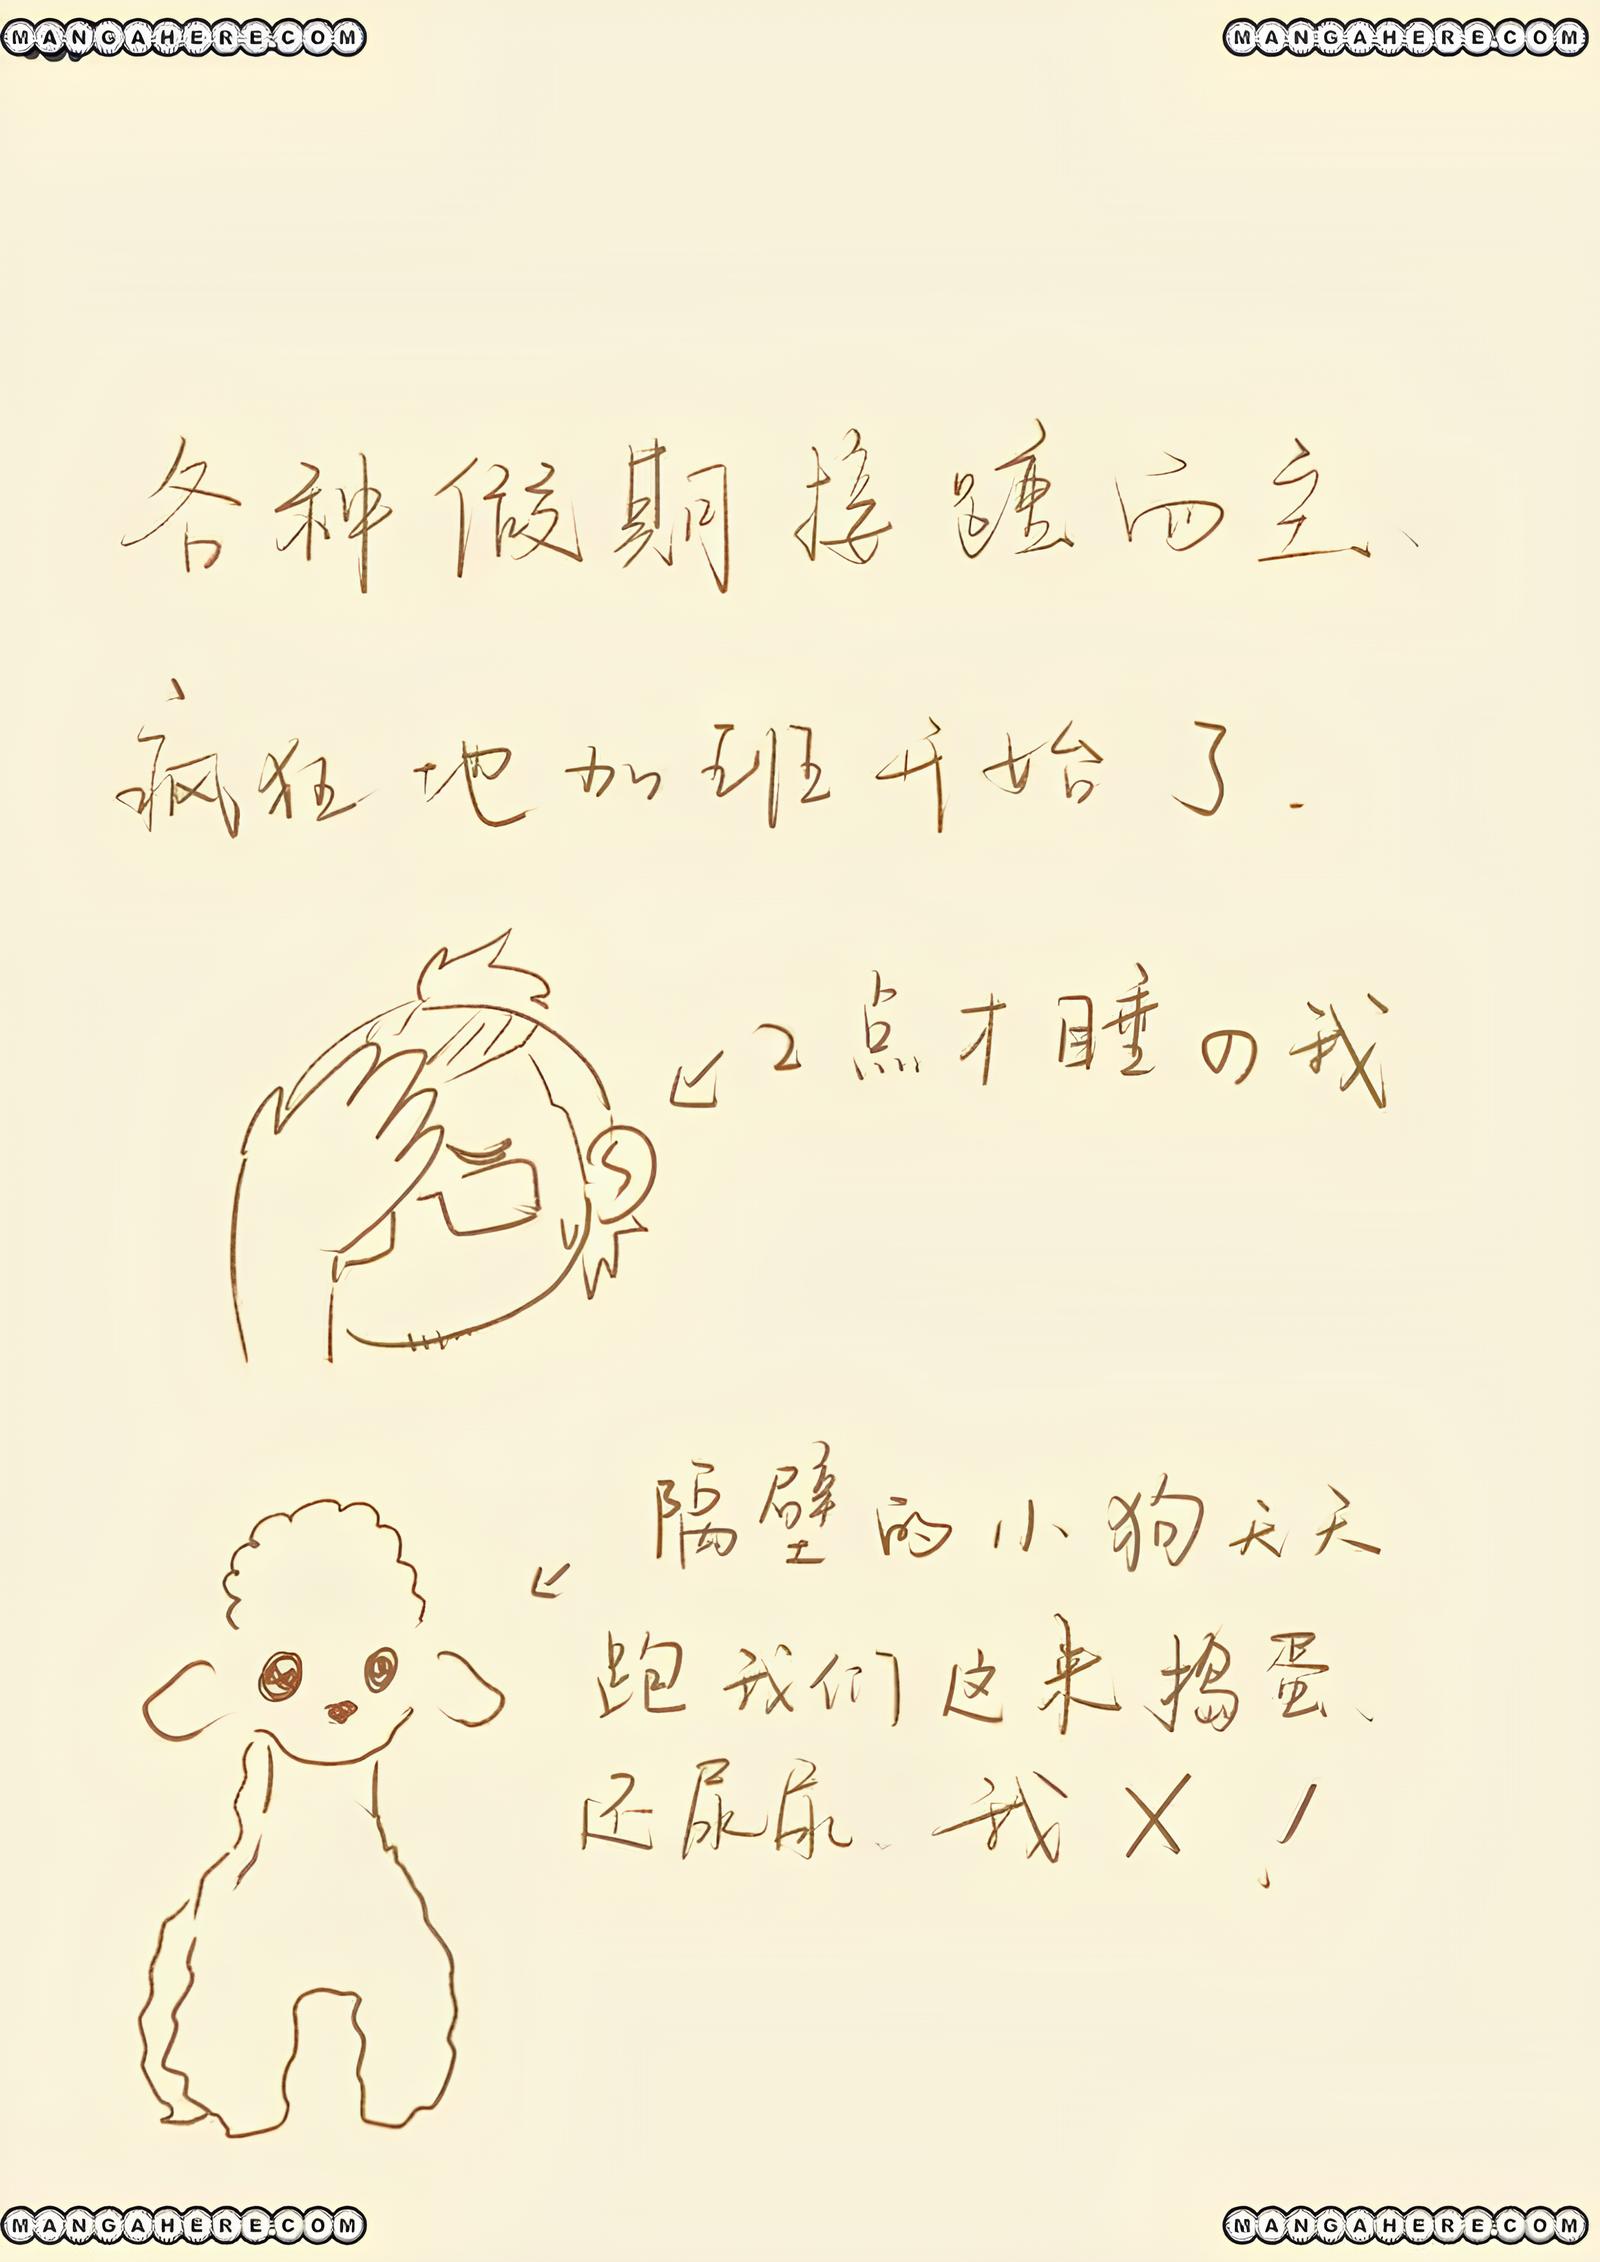 MANGAHERE.COM
MANGAHERE.COM
各种假期接踵而至、
疯狂地加班开始了.
2点才睡の我
隔壁的小狗天天
跑我们这来捣蛋、
还尿尿.我X!
MANGAHERE.COM
MANGAHERE.COM